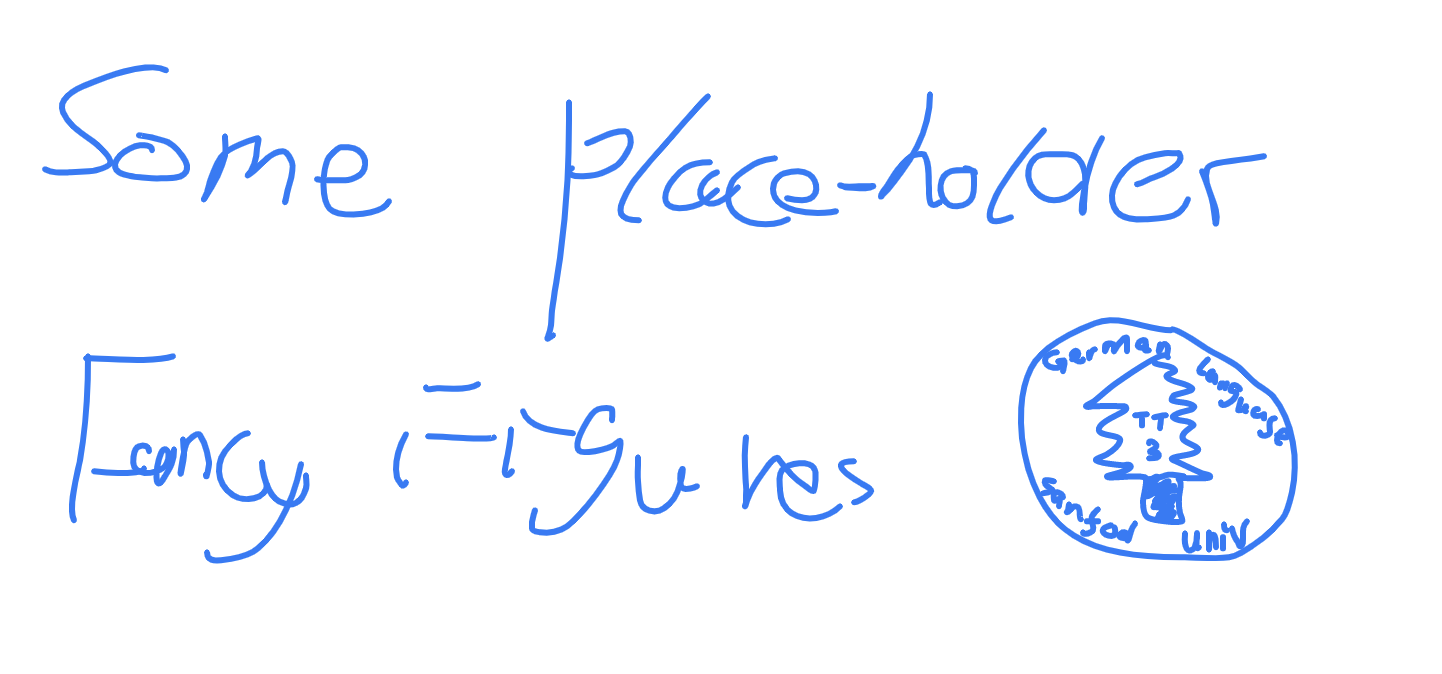 Some place-holder
Fancy Figures
German
Language
TT
3
Univ